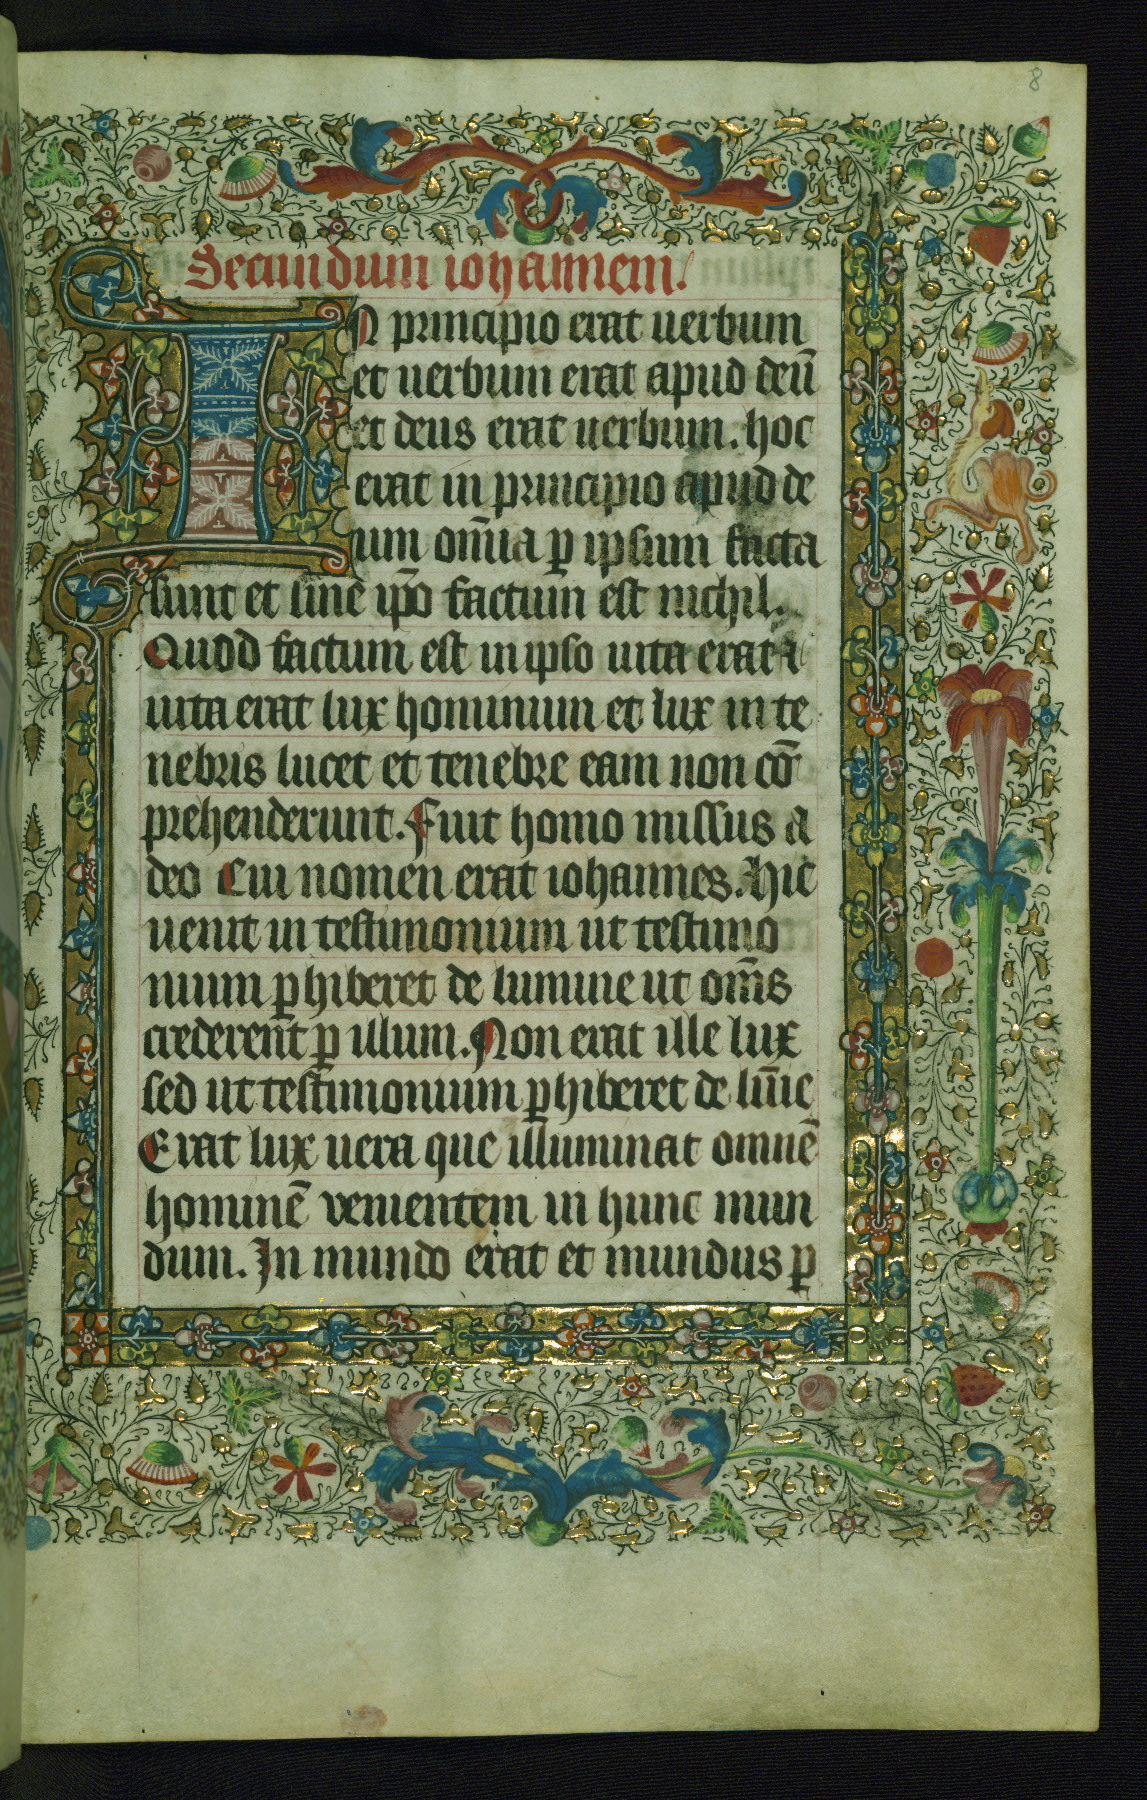 8
Secundum iohannem.
IN principio erat uerbum
et uerbum erat apud deū
et deus erat uerbum. hoc
erat in principio apud de
um om̄ia ꝑ ipsum facta
sunt et sine ip̄o factum est nichil.
Quod factum est in ipso uita erat ⁊
uita erat lux hominum et lux in te
nebris lucet et tenebre eam non cō
prehenderunt. Fuit homo missus a
deo Cui nomen erat iohannes. Hic
uenit in testimonium ut testimo
nium ꝑhiberet de lumine ut om̄s
crederent ꝑ illum. Non erat ille lux
sed ut testimonium ꝑhiberet de lūie
Erat lux uera que illuminat omnē
hominē venientem in hunc mun
dum. In mundo erat et mundus ꝑ